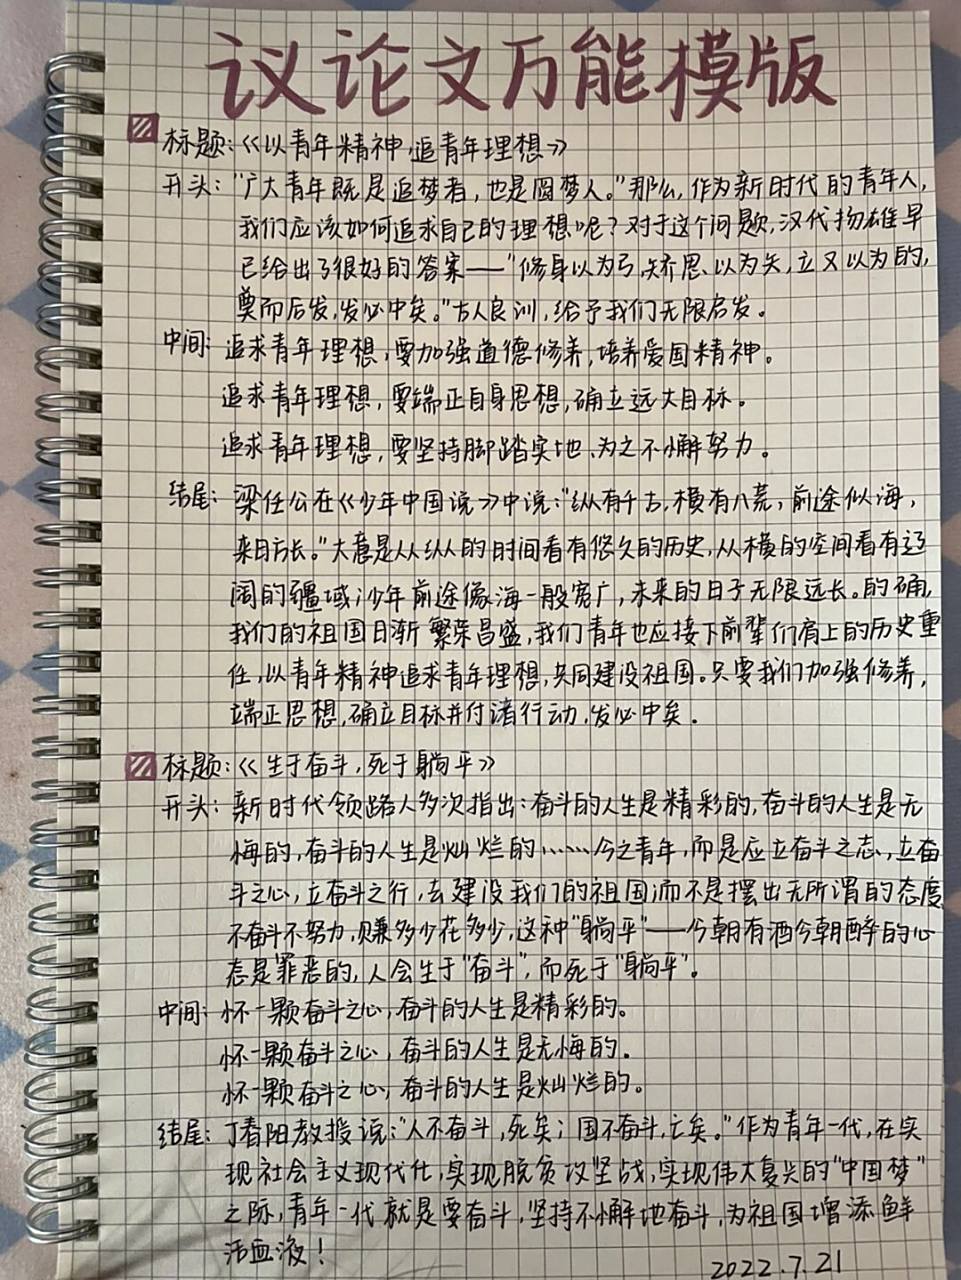 议论文万能模版
标题:《以青年精神,追青年理想》
开头:"广大青年既是追梦者,也是圆梦人。"那么,作为新时代的青年人,
我们应该如何追求自己的理想呢?对于这个问题,汉代扬雄早
已给出了很好的答案——"修身以为弓,矫思以为矢,立义以为的,
奠而后发,发必中矣。"古人良训,给予我们无限启发。
中间:追求青年理想,要加强道德修养,培养爱国精神。
追求青年理想,要端正自身思想,确立远大目标。
追求青年理想,要坚持脚踏实地、为之不懈努力。
结尾:梁任公在《少年中国说》中说:"纵有千古,横有八荒,前途似海,
来日方长。"大意是从纵的时间看有悠久的历史,从横的空间看有辽
阔的疆域,少年前途像海一般宽广,未来的日子无限远长。的确,
我们的祖国日渐繁荣昌盛,我们青年也应接下前辈们肩上的历史重
任,以青年精神追求青年理想,共同建设祖国。只要我们加强修养,
端正思想,确立目标并付诸行动,发必中矣。
标题:《生于奋斗,死于躺平》
开头:新时代领路人多次指出:奋斗的人生是精彩的,奋斗的人生是无
悔的,奋斗的人生是灿烂的……今之青年,而是应立奋斗之志,立奋
斗之心,立奋斗之行,去建设我们的祖国,而不是摆出无所谓的态度
不奋斗不努力,赚多少花多少,这种"躺平"——今朝有酒今朝醉的心
态是罪恶的,人会生于"奋斗",而死于"躺平"。
中间:怀一颗奋斗之心,奋斗的人生是精彩的。
怀一颗奋斗之心,奋斗的人生是无悔的.
怀一颗奋斗之心,奋斗的人生是灿烂的.
结尾:丁春阳教授说:"人不奋斗,死矣;国不奋斗,亡矣。"作为青年一代,在实
现社会主义现代化,实现脱贫攻坚战,实现伟大复兴的"中国梦"
之际,青年一代就是要奋斗,坚持不懈地奋斗,为祖国增添鲜
活血液!
2022.7.21